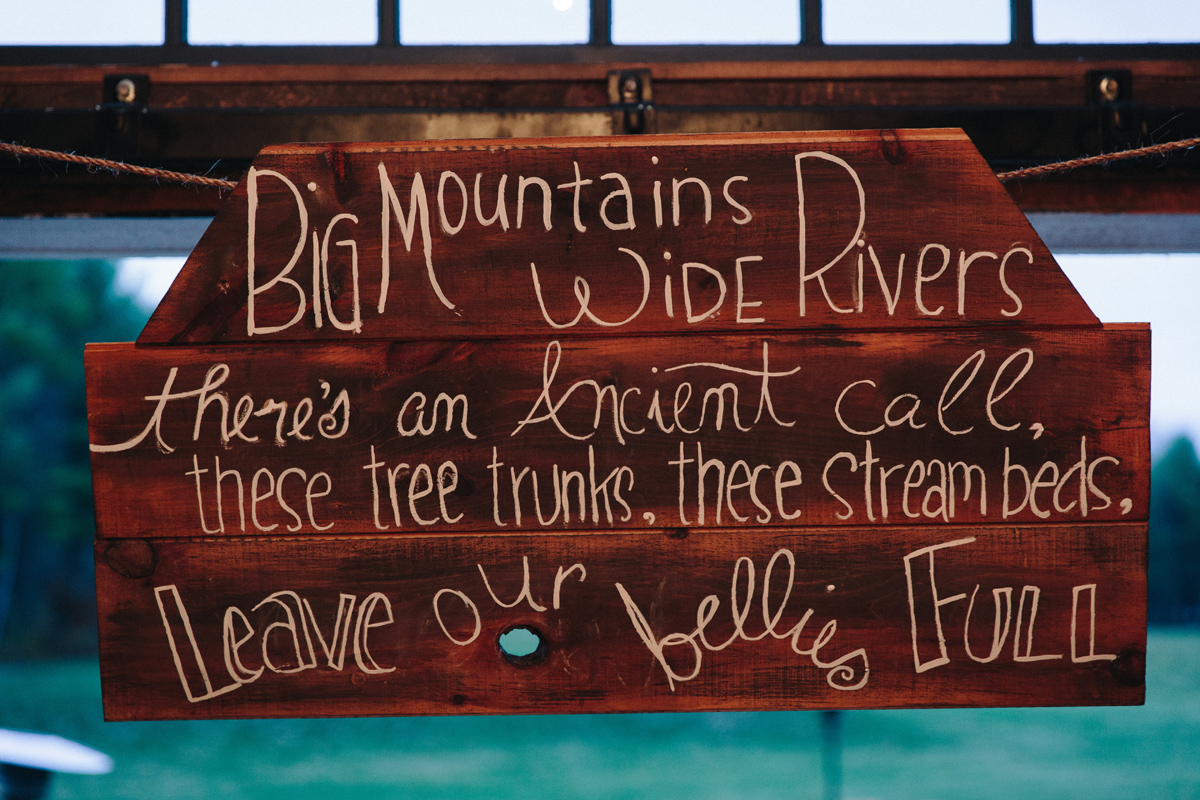 BiG Mountains
WiDE Rivers
there's an Ancient call,
these tree trunks, these stream beds,
Leave our bellies FuLL